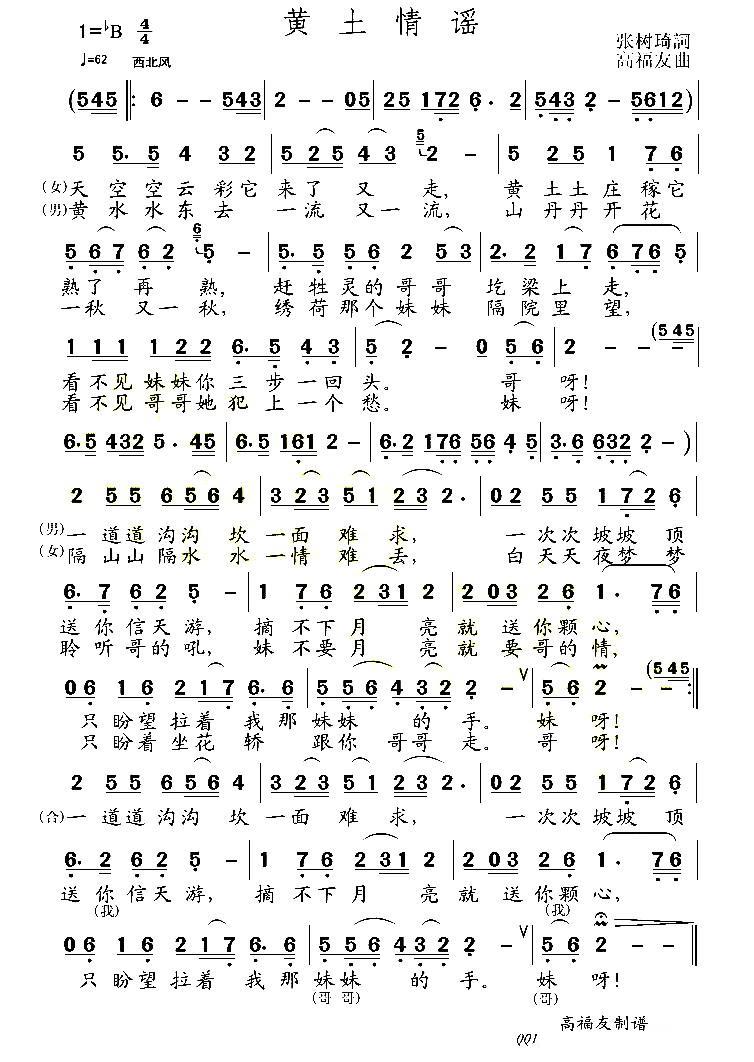 黄土情谣
1=♭B 4/4
♩=62 西北风
张树琦詞
高福友曲
(545 ‖: 6 - - 543 | 2 - - 05 | 25 172 6· 2 | 543 2 - 5612) |
5 5· 5 4 3 2 | 5 2 5 4 3 5 2 - | 5 2 5 1 7 6 |
(女)天空空云彩它来了又走,黄土土庄稼它
(男)黄水水东去一流又一流,山丹丹开花
5 6 7 6 2 6 5 - | 5· 5 5 6 2 5 3 | 2· 2 1 7 6 7 6 5 |
熟了再熟,赶牲灵的哥哥圪梁上走,
一秋又一秋,绣荷那个妹妹隔院里望,
1 1 1 1 2 2 6· 5 4 3 | 5 2 - 0 5 6 | 2 - - (545 |
看不见妹妹你三步一回头。哥呀!
看不见哥哥她犯上一个愁。妹呀!
6·5 432 5· 45 | 6·5 161 2 - | 6·2 176 56 4 5 | 3·6 632 2 -) |
2 5 5 6 5 6 4 | 3 2 3 5 1 2 3 2· | 0 2 5 5 1 7 2 6 |
(男)一道道沟沟坎一面难求,一次次坡坡顶
(女)隔山山隔水水一情难丢,白天天夜梦梦
6· 7 6 2 5 - | 1 7 6 2 3 1 2 | 2 0 3 2 6 1· 7 6 |
送你信天游,摘不下月亮就送你颗心,
聆听哥的吼,妹不要月亮就要哥的情,
0 6 1 6 2 1 7 6· 6 | 5 5 6 4 3 2 2 - ∨ | 5 6 2 - (545 :‖
只盼望拉着我那妹妹的手。妹呀!
只盼着坐花轿跟你哥哥走。哥呀!
2 5 5 6 5 6 4 | 3 2 3 5 1 2 3 2· | 0 2 5 5 1 7 2 6 |
(合)一道道沟沟坎一面难求,一次次坡坡顶
6· 2 6 2 5 - | 1 7 6 2 3 1 2 | 2 0 3 2 6 1· 7 6 |
送你信天游,摘不下月亮就送你颗心,
(我) (我)
0 6 1 6 2 1 7 6· 6 | 5 5 6 4 3 2 2 - ∨ | 5 6 2 - - ‖
只盼望拉着我那妹妹的手。妹呀!
(哥哥) (哥)
高福友制谱
QQ1